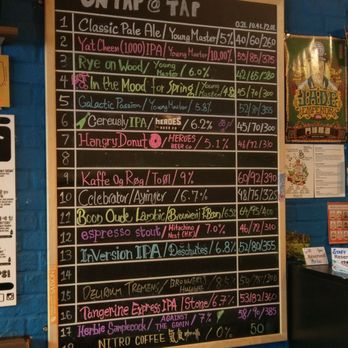 ON TAP @ TAP
0.2L 0.4L 1.2L
1 Classic Pale Ale / Young Master / 5% 40/60/
2 Yat Cheen (1000) IPA / Young Master / 10.00% 55/85/375
3 Rye on Wood / Young Master / 6.0% 42/65/280
4 In the Mood for Spring / Young Master / 4.8% 45/70/300
5 Galactic Passion / Young Master / 5.8% 52/80/355
6 Cereusly IPA / HEROES / 6.2% 45/70/300
7 Hangry Donut / HEROES BEER CO / 5.1% 46/72/310
8
9 Kaffe Og Røg / Tool / 9% 60/92/390
10 Celebrator / Ayinger / 6.7% 48/75/325
11 Boon Oude Lambic / Brouwerij F. Boon / 64/95/400
12 espresso stout / Hitachino Nest / 7.0% 46/72/310
13 InVersion IPA / Deschutes / 6.8% 52/80/355
14
15 DELIRIUM / TREMENS / BROUWERIJ HUYGHE
16 Tangerine Express IPA / Stone / 6.7% 53/82/360
17 Herbie / AGAINST THE GRAIN / 7% 58/90/385
NITRO COFFEE / 0% 50